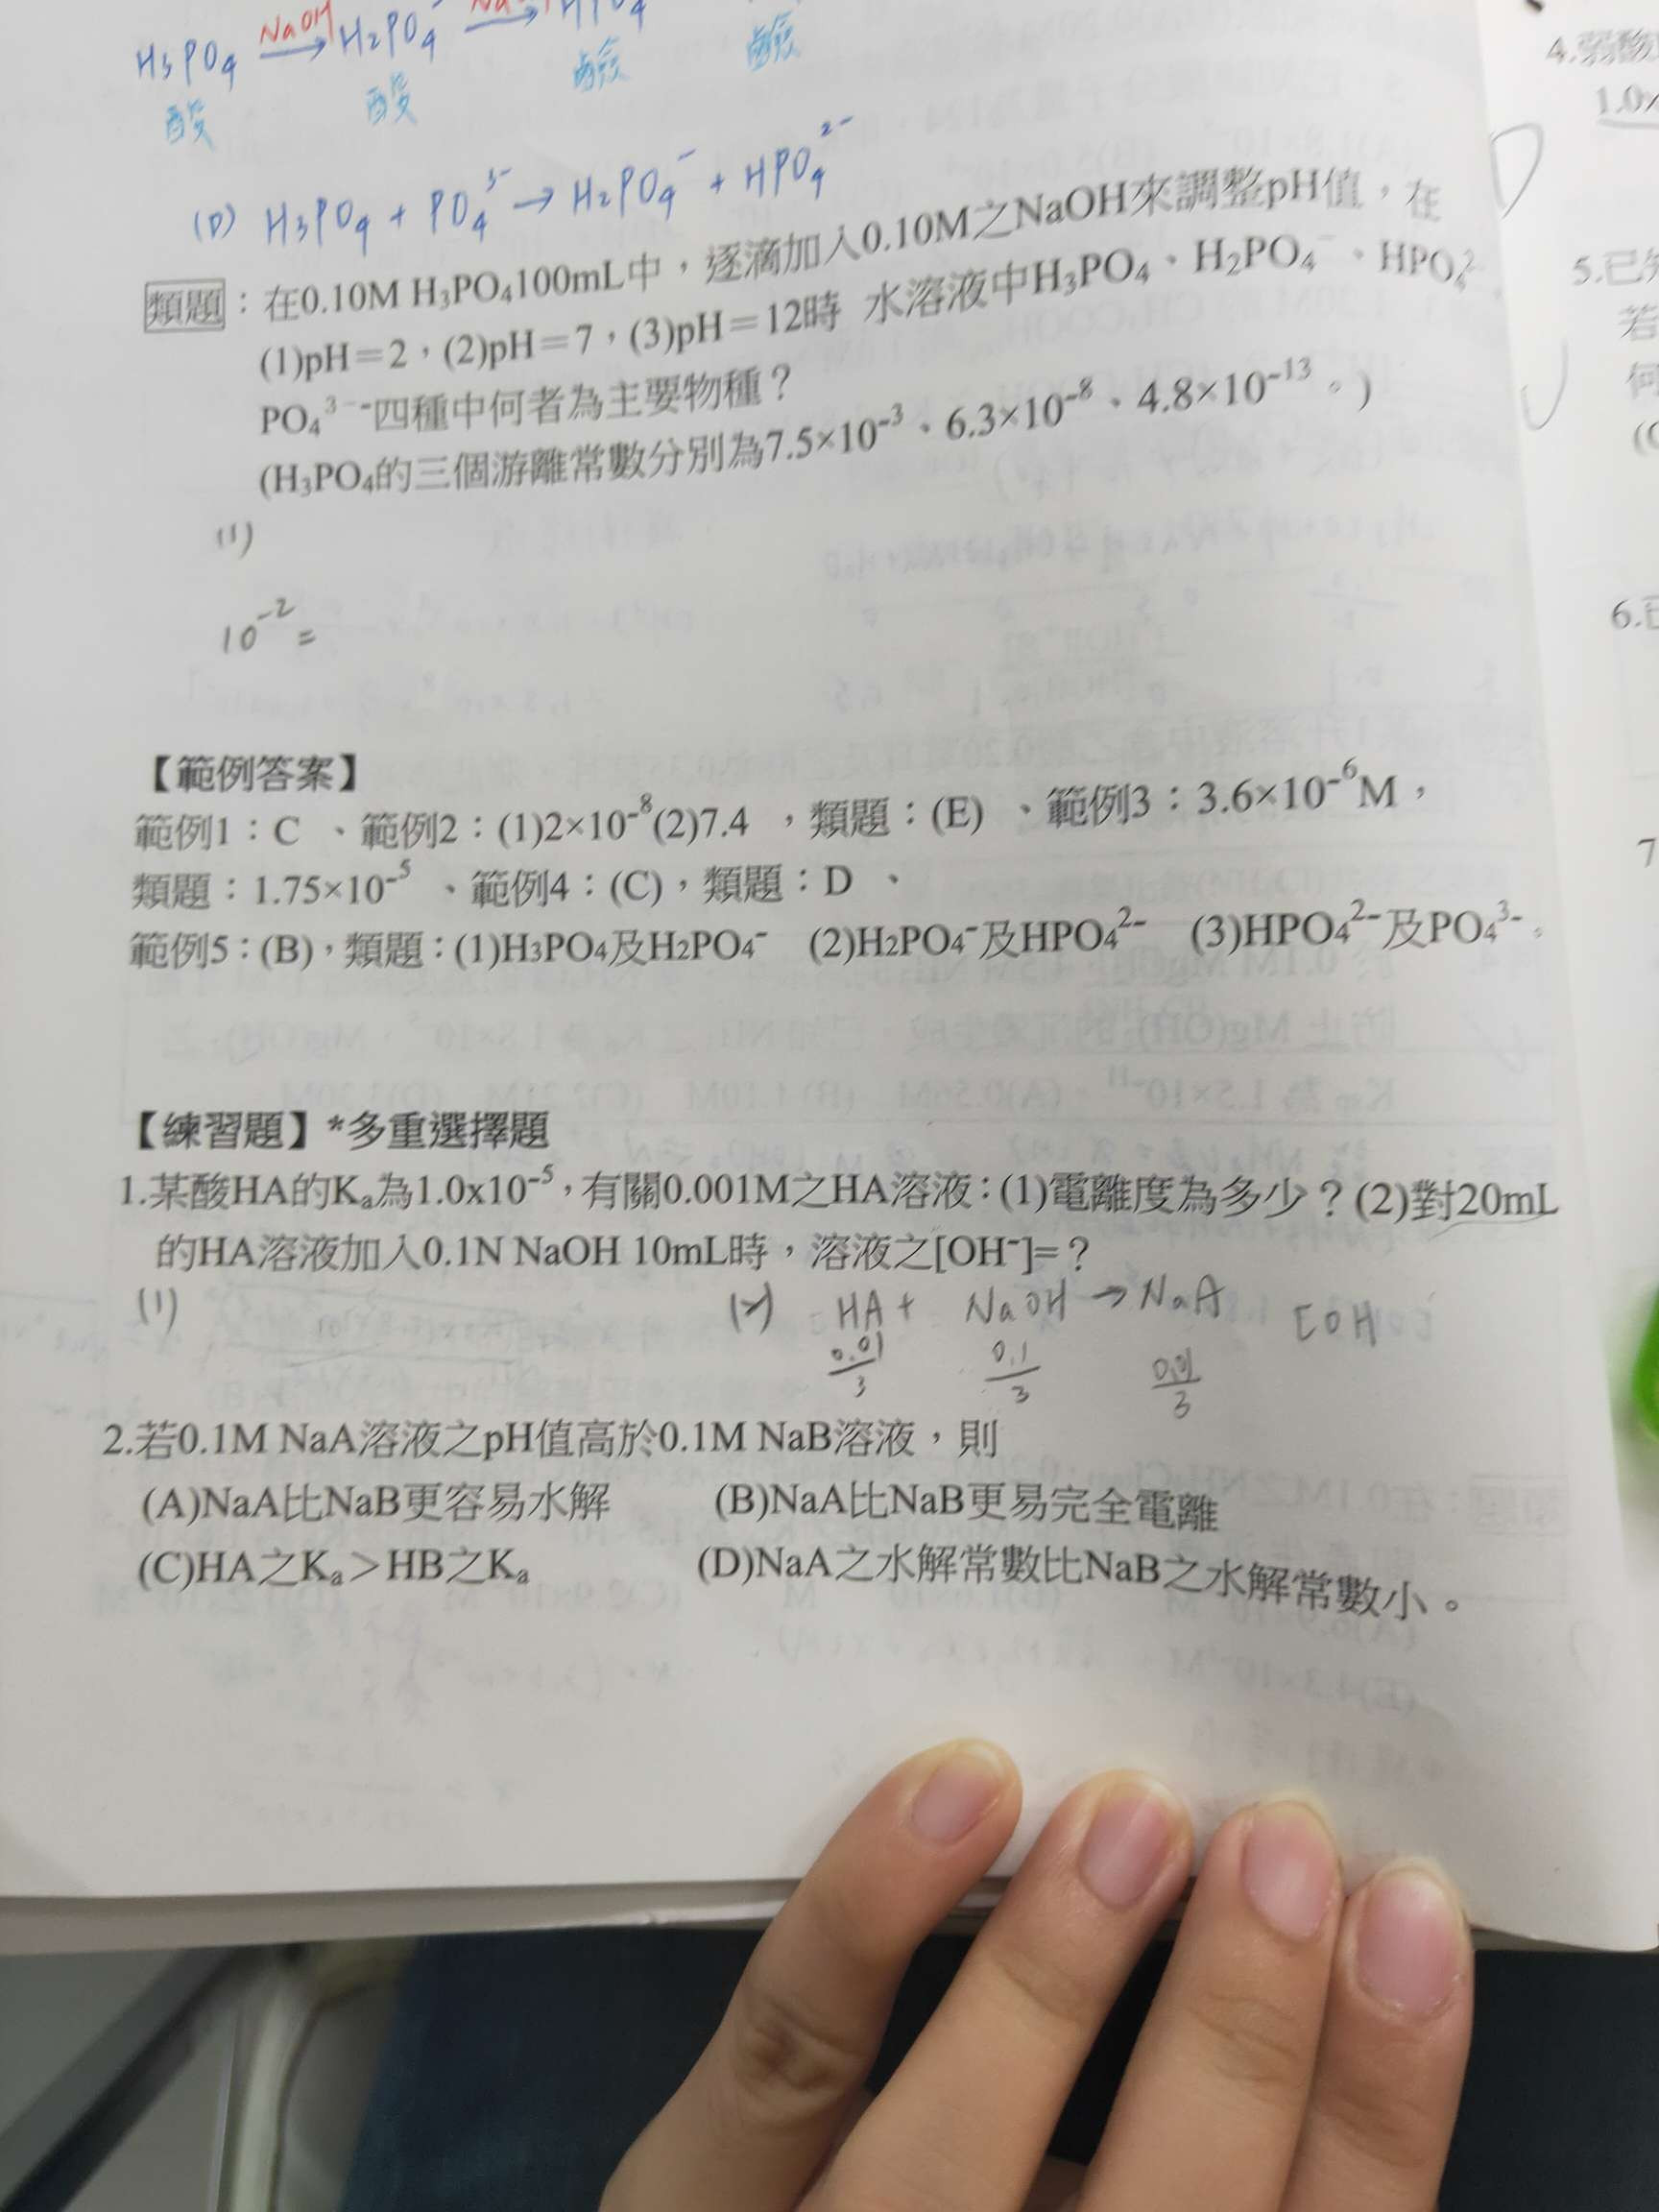 H₃PO₄ NaOH→ H₂PO₄⁻ →
酸 酸 鹼 鹼
(D) H₃PO₄ + PO₄³⁻ → H₂PO₄⁻ + HPO₄²⁻
類題：在0.10M H₃PO₄100mL中，逐滴加入0.10M之NaOH來調整pH值，在
(1)pH＝2，(2)pH＝7，(3)pH＝12時 水溶液中H₃PO₄、H₂PO₄⁻、HPO₄²⁻、
PO₄³⁻四種中何者為主要物種？
(H₃PO₄的三個游離常數分別為7.5×10⁻³、6.3×10⁻⁸、4.8×10⁻¹³。)
(1)
10⁻² =
【範例答案】
範例1：C 、範例2：(1)2×10⁻⁸(2)7.4 ，類題：(E) 、範例3：3.6×10⁻⁶M，
類題：1.75×10⁻⁵ 、範例4：(C)，類題：D 、
範例5：(B)，類題：(1)H₃PO₄及H₂PO₄⁻ (2)H₂PO₄⁻及HPO₄²⁻ (3)HPO₄²⁻及PO₄³⁻。
【練習題】*多重選擇題
1.某酸HA的Kₐ為1.0x10⁻⁵，有關0.001M之HA溶液：(1)電離度為多少？(2)對20mL
的HA溶液加入0.1N NaOH 10mL時，溶液之[OH⁻]=？
(1) (2) HA + NaOH → NaA [OH
0.01/3 0.1/3 0.01/3
2.若0.1M NaA溶液之pH值高於0.1M NaB溶液，則
(A)NaA比NaB更容易水解 (B)NaA比NaB更易完全電離
(C)HA之Kₐ＞HB之Kₐ (D)NaA之水解常數比NaB之水解常數小。
4.弱酸
1.0×
5.已知
若
何
6.已
7